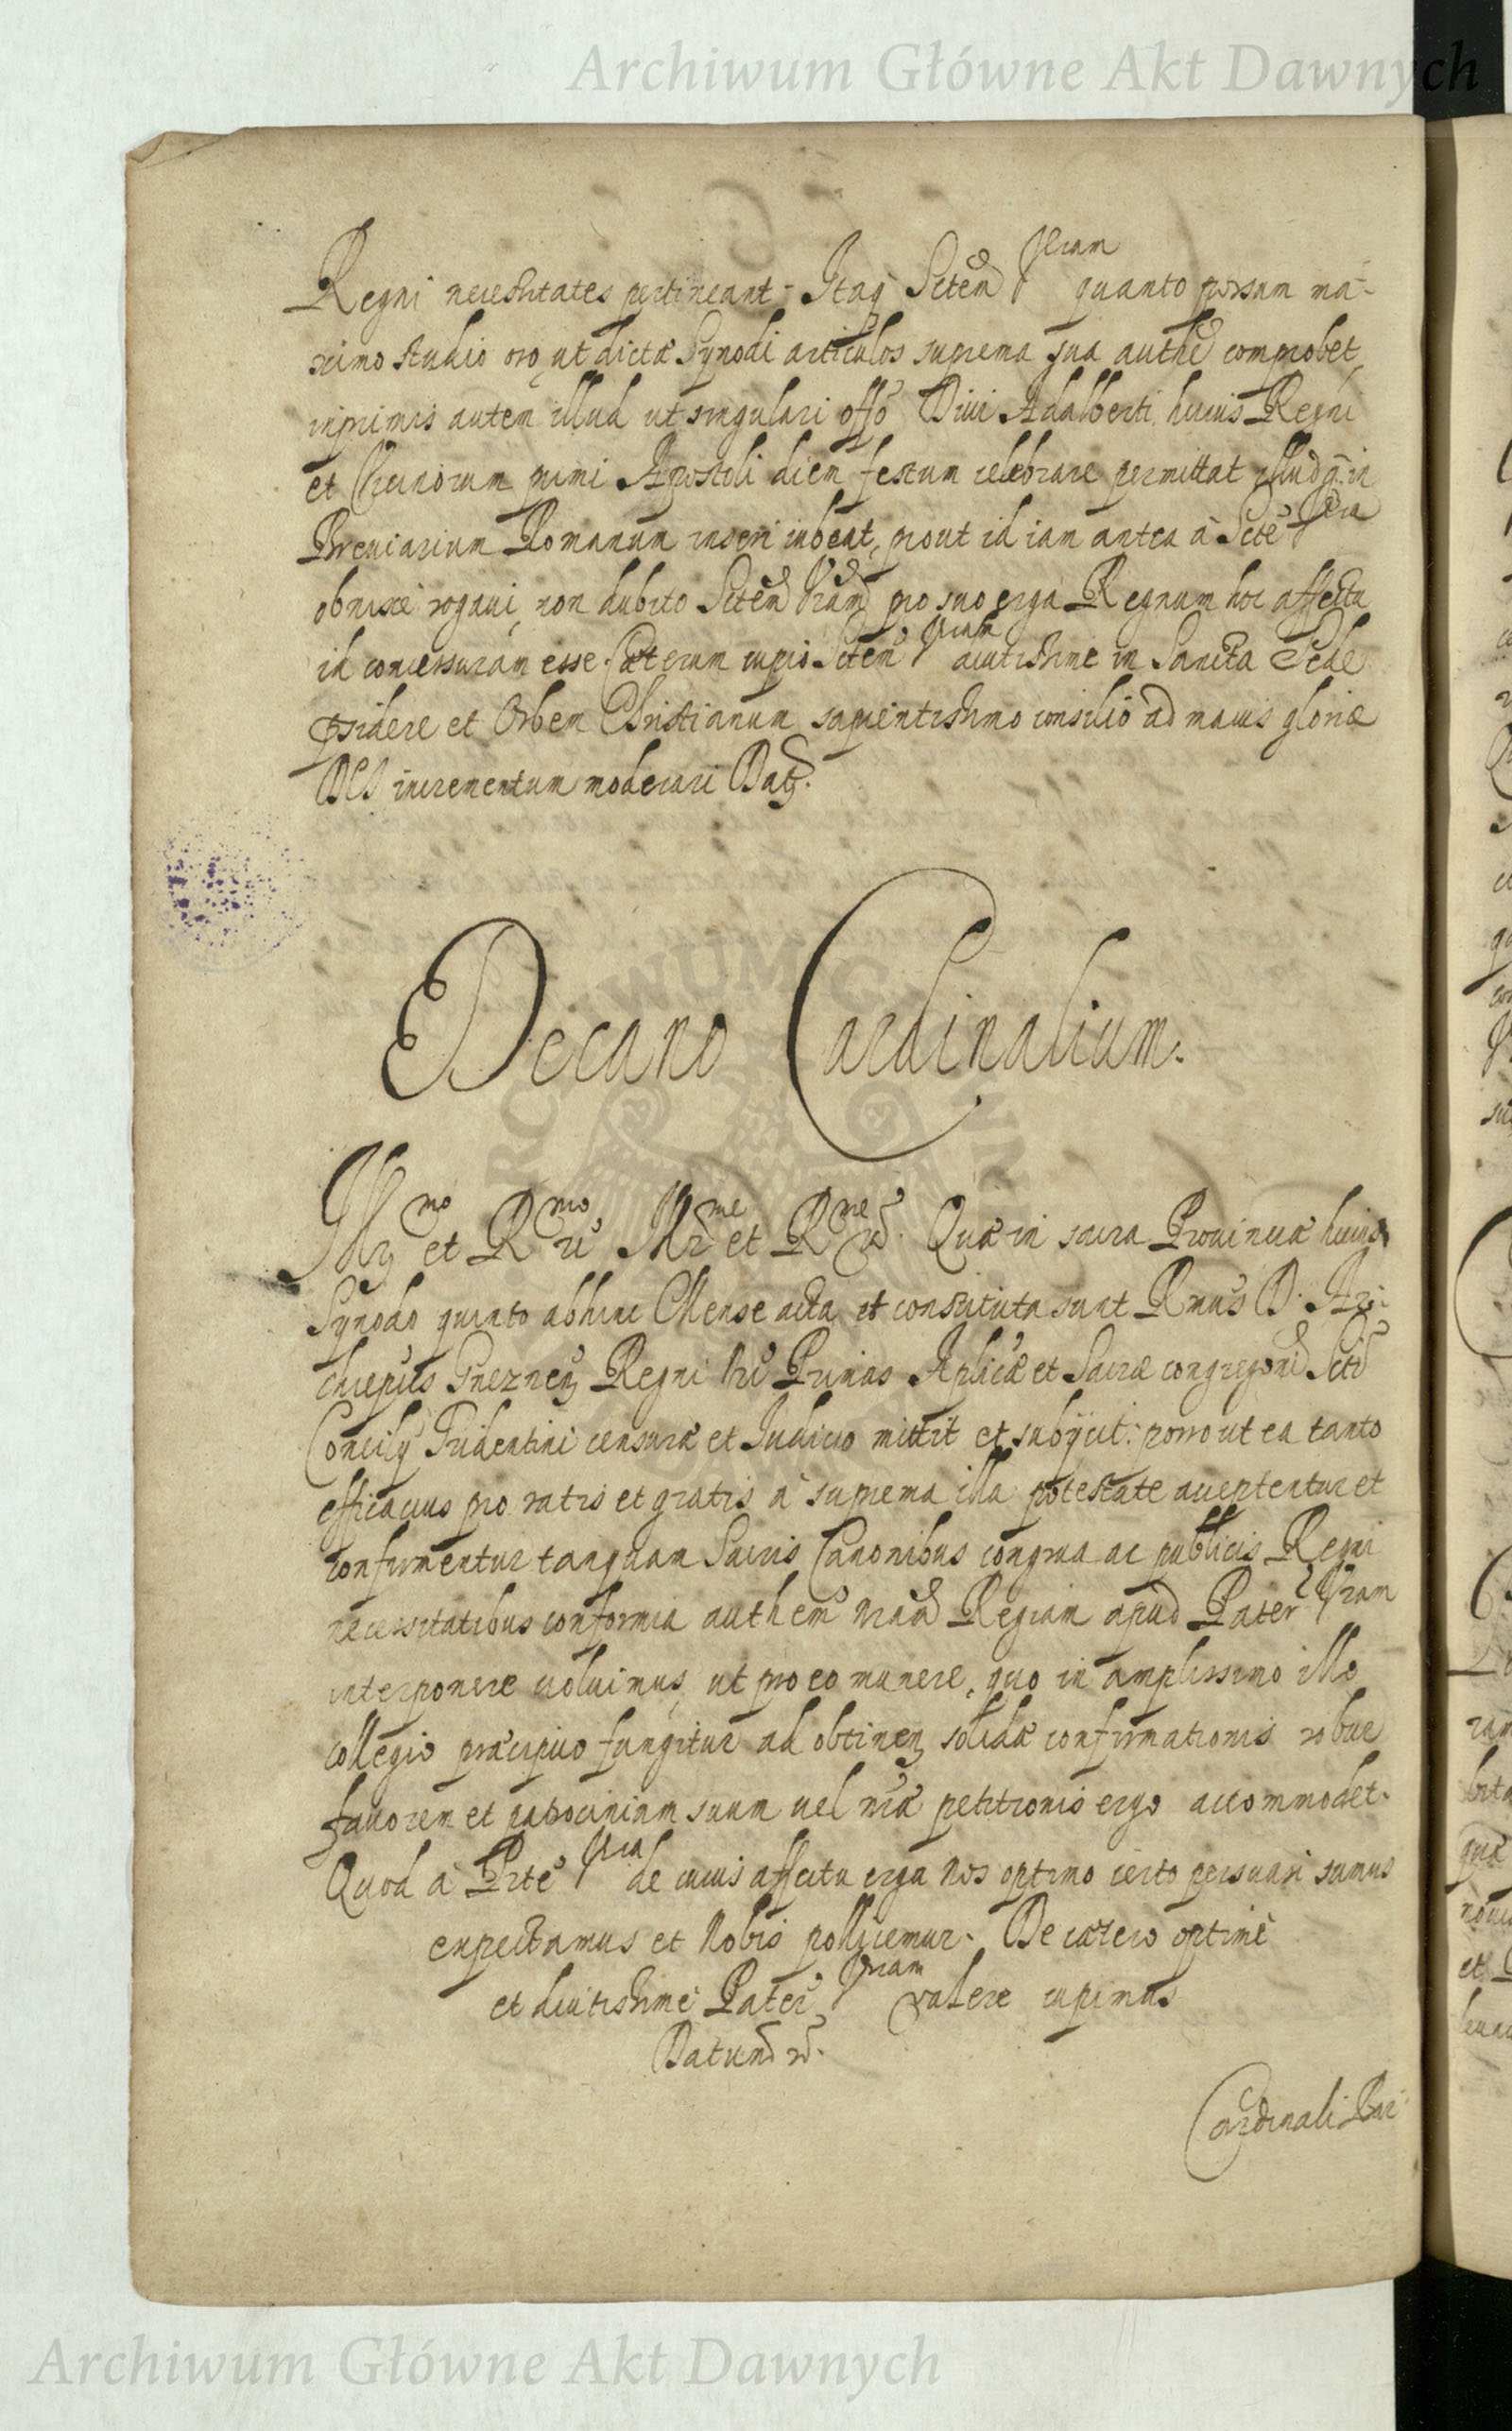 Archiwum Główne Akt Dawnych
Regni necessitates pertineant. Itaq Sctem Vram quanto possum ma-
ximo studio oro, ut dictæ Synodi articulos suprema sua authe comprobet,
inprimis autem illud ut singulari offo Divi Adalberti huius Regni
et Vicinorum primi Apostoli diem festum celebrare permittat illudq in
Breviarium Romanum inseri iubeat, prout id iam antea à Scte Vra
obnixè rogavi, non dubito Sctem Vram pro suo erga Regnum hoc affectu
id concessuram esse. Cæterum cupio Sctem Vram diutissime in Sancta Sede
præsidere et Orbem Christianum sapientissimo consilio ad maius gloriæ
DEI incrementum moderari Dat.
Decano Cardinalium.
Illmo et Rmo Illme et Rme. Quæ in sacra Provinciæ huius
Synodo quinto abhinc Mense acta et constituta sunt Rmus D. Ar-
chiepus Gneznen Regni Nri Primas Aplicæ et Sacræ congregonis Scti
Concilij Tridentini censuræ et Iudicio mittit et subijcit: porro ut ea tanto
efficacius pro ratis et gratis à suprema illa potestate acceptentur et
confirmentur tanquam Sacris Canonibus congrua ac publicis Regni
necessitatibus conformia authem nram Regiam apud Pater Vram
interponere voluimus, ut pro eo munere, quo in amplissimo illo
collegio præcipuo fungitur ad obtinen solidæ confirmationis robur
favorem et patrocinium suum vel nræ petitionis ergo accommodet.
Quod à Prte Vra de cuius affectu erga Nos optimo certo persuasi sumus
expectamus et Nobis pollicemur. De cætero optimè
et diutissimè Pater Vram valere cupimus
Datum
Cardinali Bar
Archiwum Główne Akt Dawnych